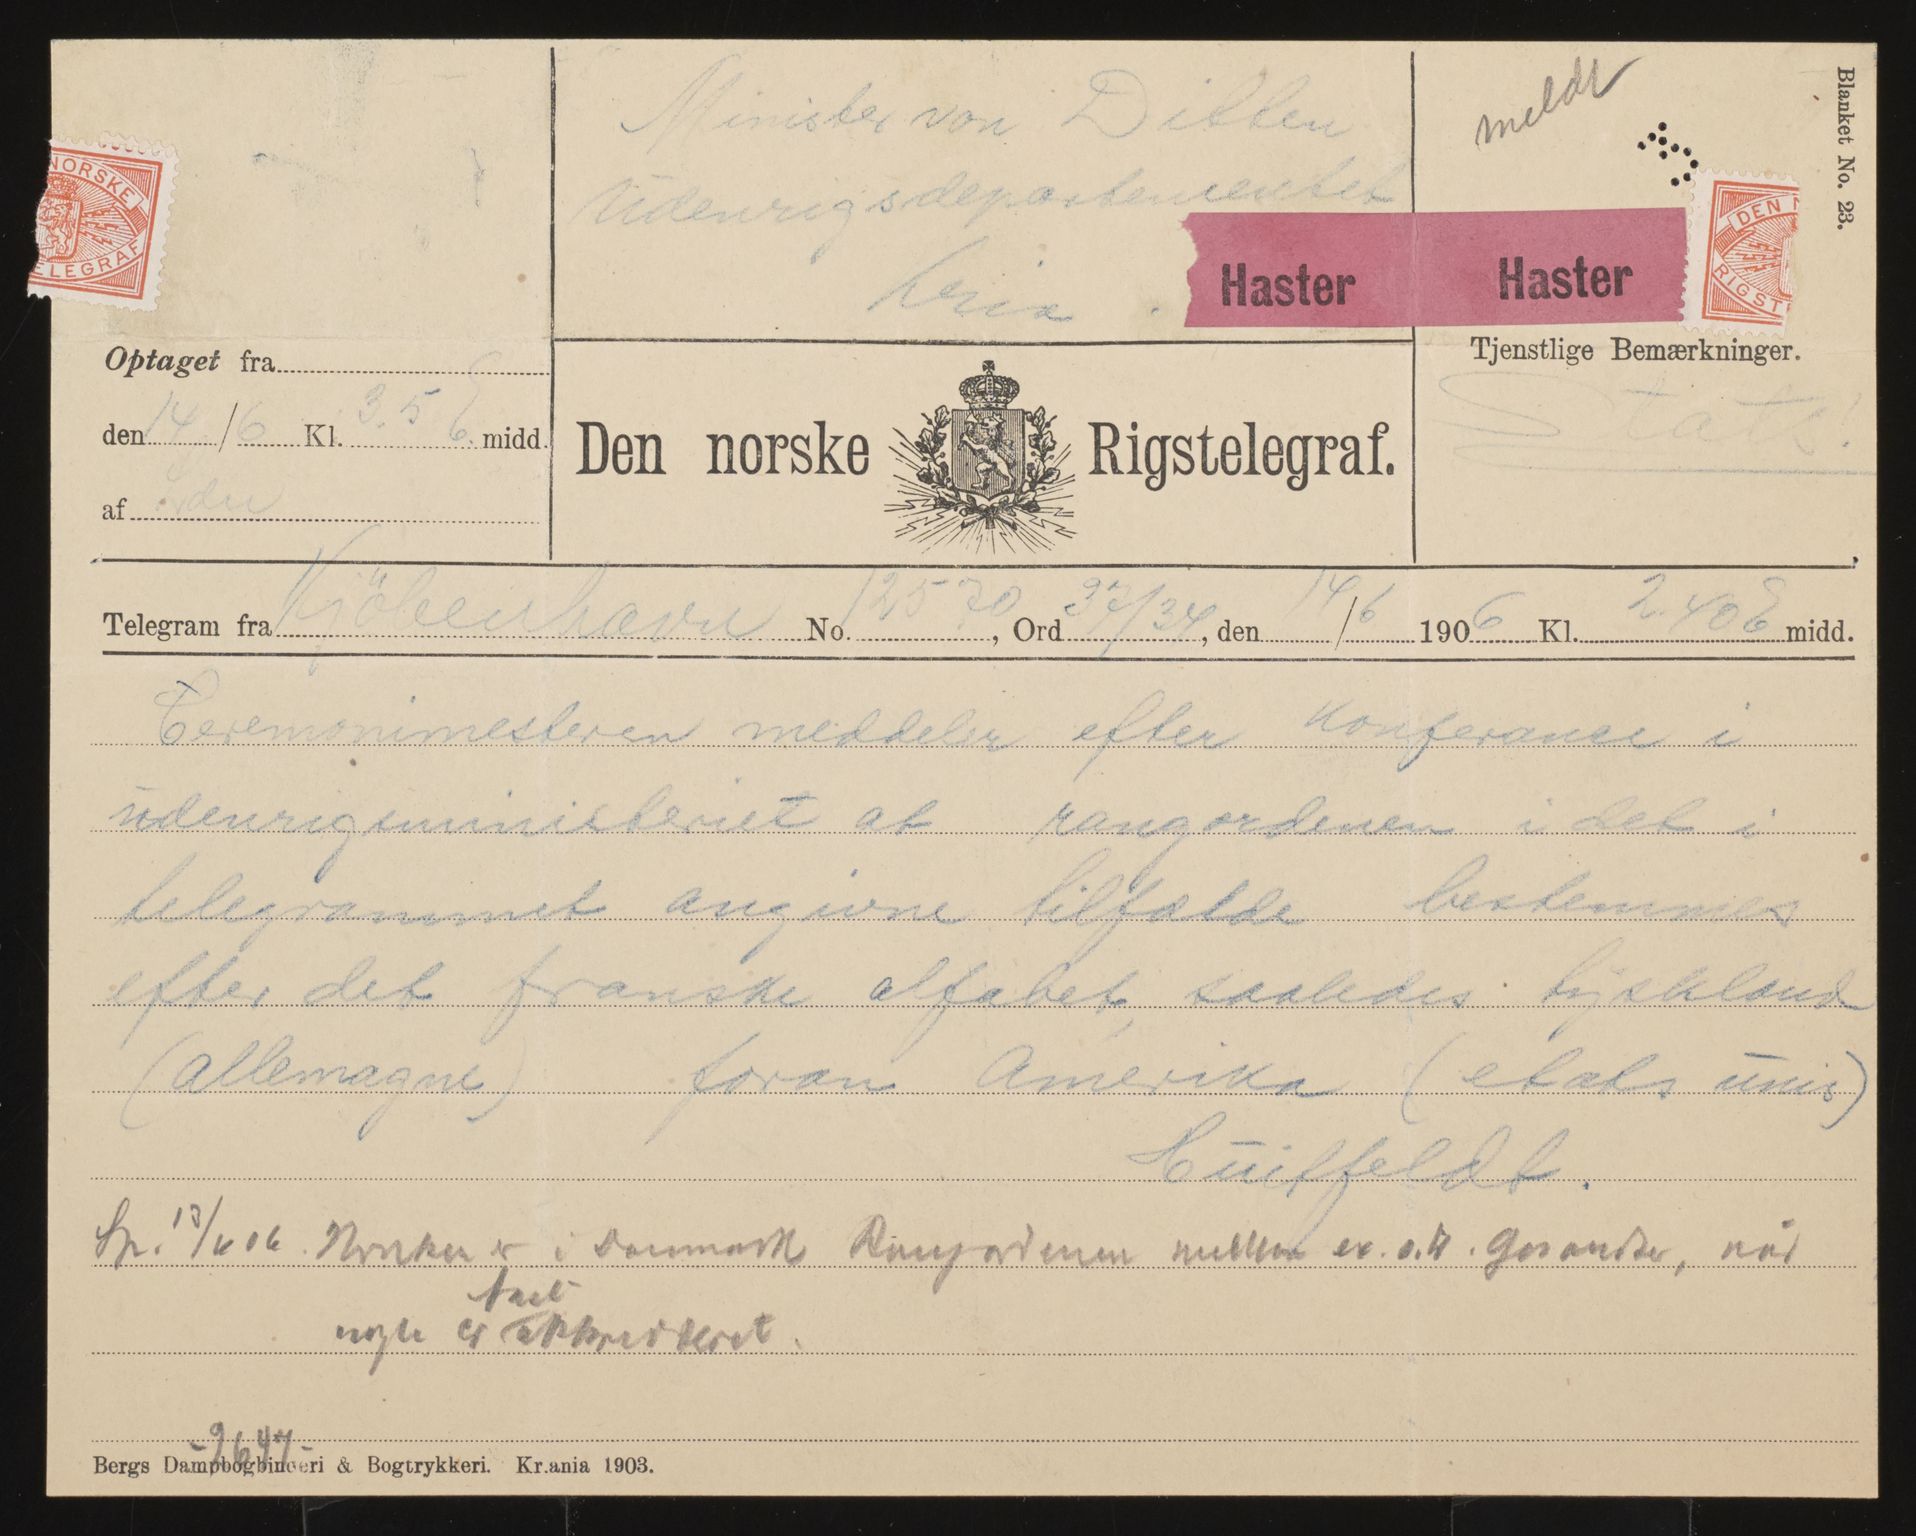 Minister von Ditten
Udenrigsdepartementet
Kria
meldt
Blanket No. 23.
NORSKE
TELEGRAF
Haster Haster
DEN N
RIGST
Optaget fra
den 14/6 Kl. 3.5 E midd.
af
Den norske Rigstelegraf.
Tjenstlige Bemærkninger.
Statk!
Telegram fra Kjöbenhavn No. 12570, Ord 37/34, den 14/6 1906 Kl. 2.40 E midd.
Ceremonimesteren meddeler efter Konferance i
udenrigsministeriet at rangordenen i det i
telegrammet angivne tilfælde bestemmes
efter det franske alfabet, saaledes tyskland
(allemagne) foran Amerika (etats unis)
Huitfeldt.
Sp. 13/6 06. Hvorken er i Danmark Rangordenen mellem ex. o. Gesandter, når
nogle er akkrediteret.
-2647-
Bergs Dampbogbinderi & Bogtrykkeri. Kr.ania 1903.